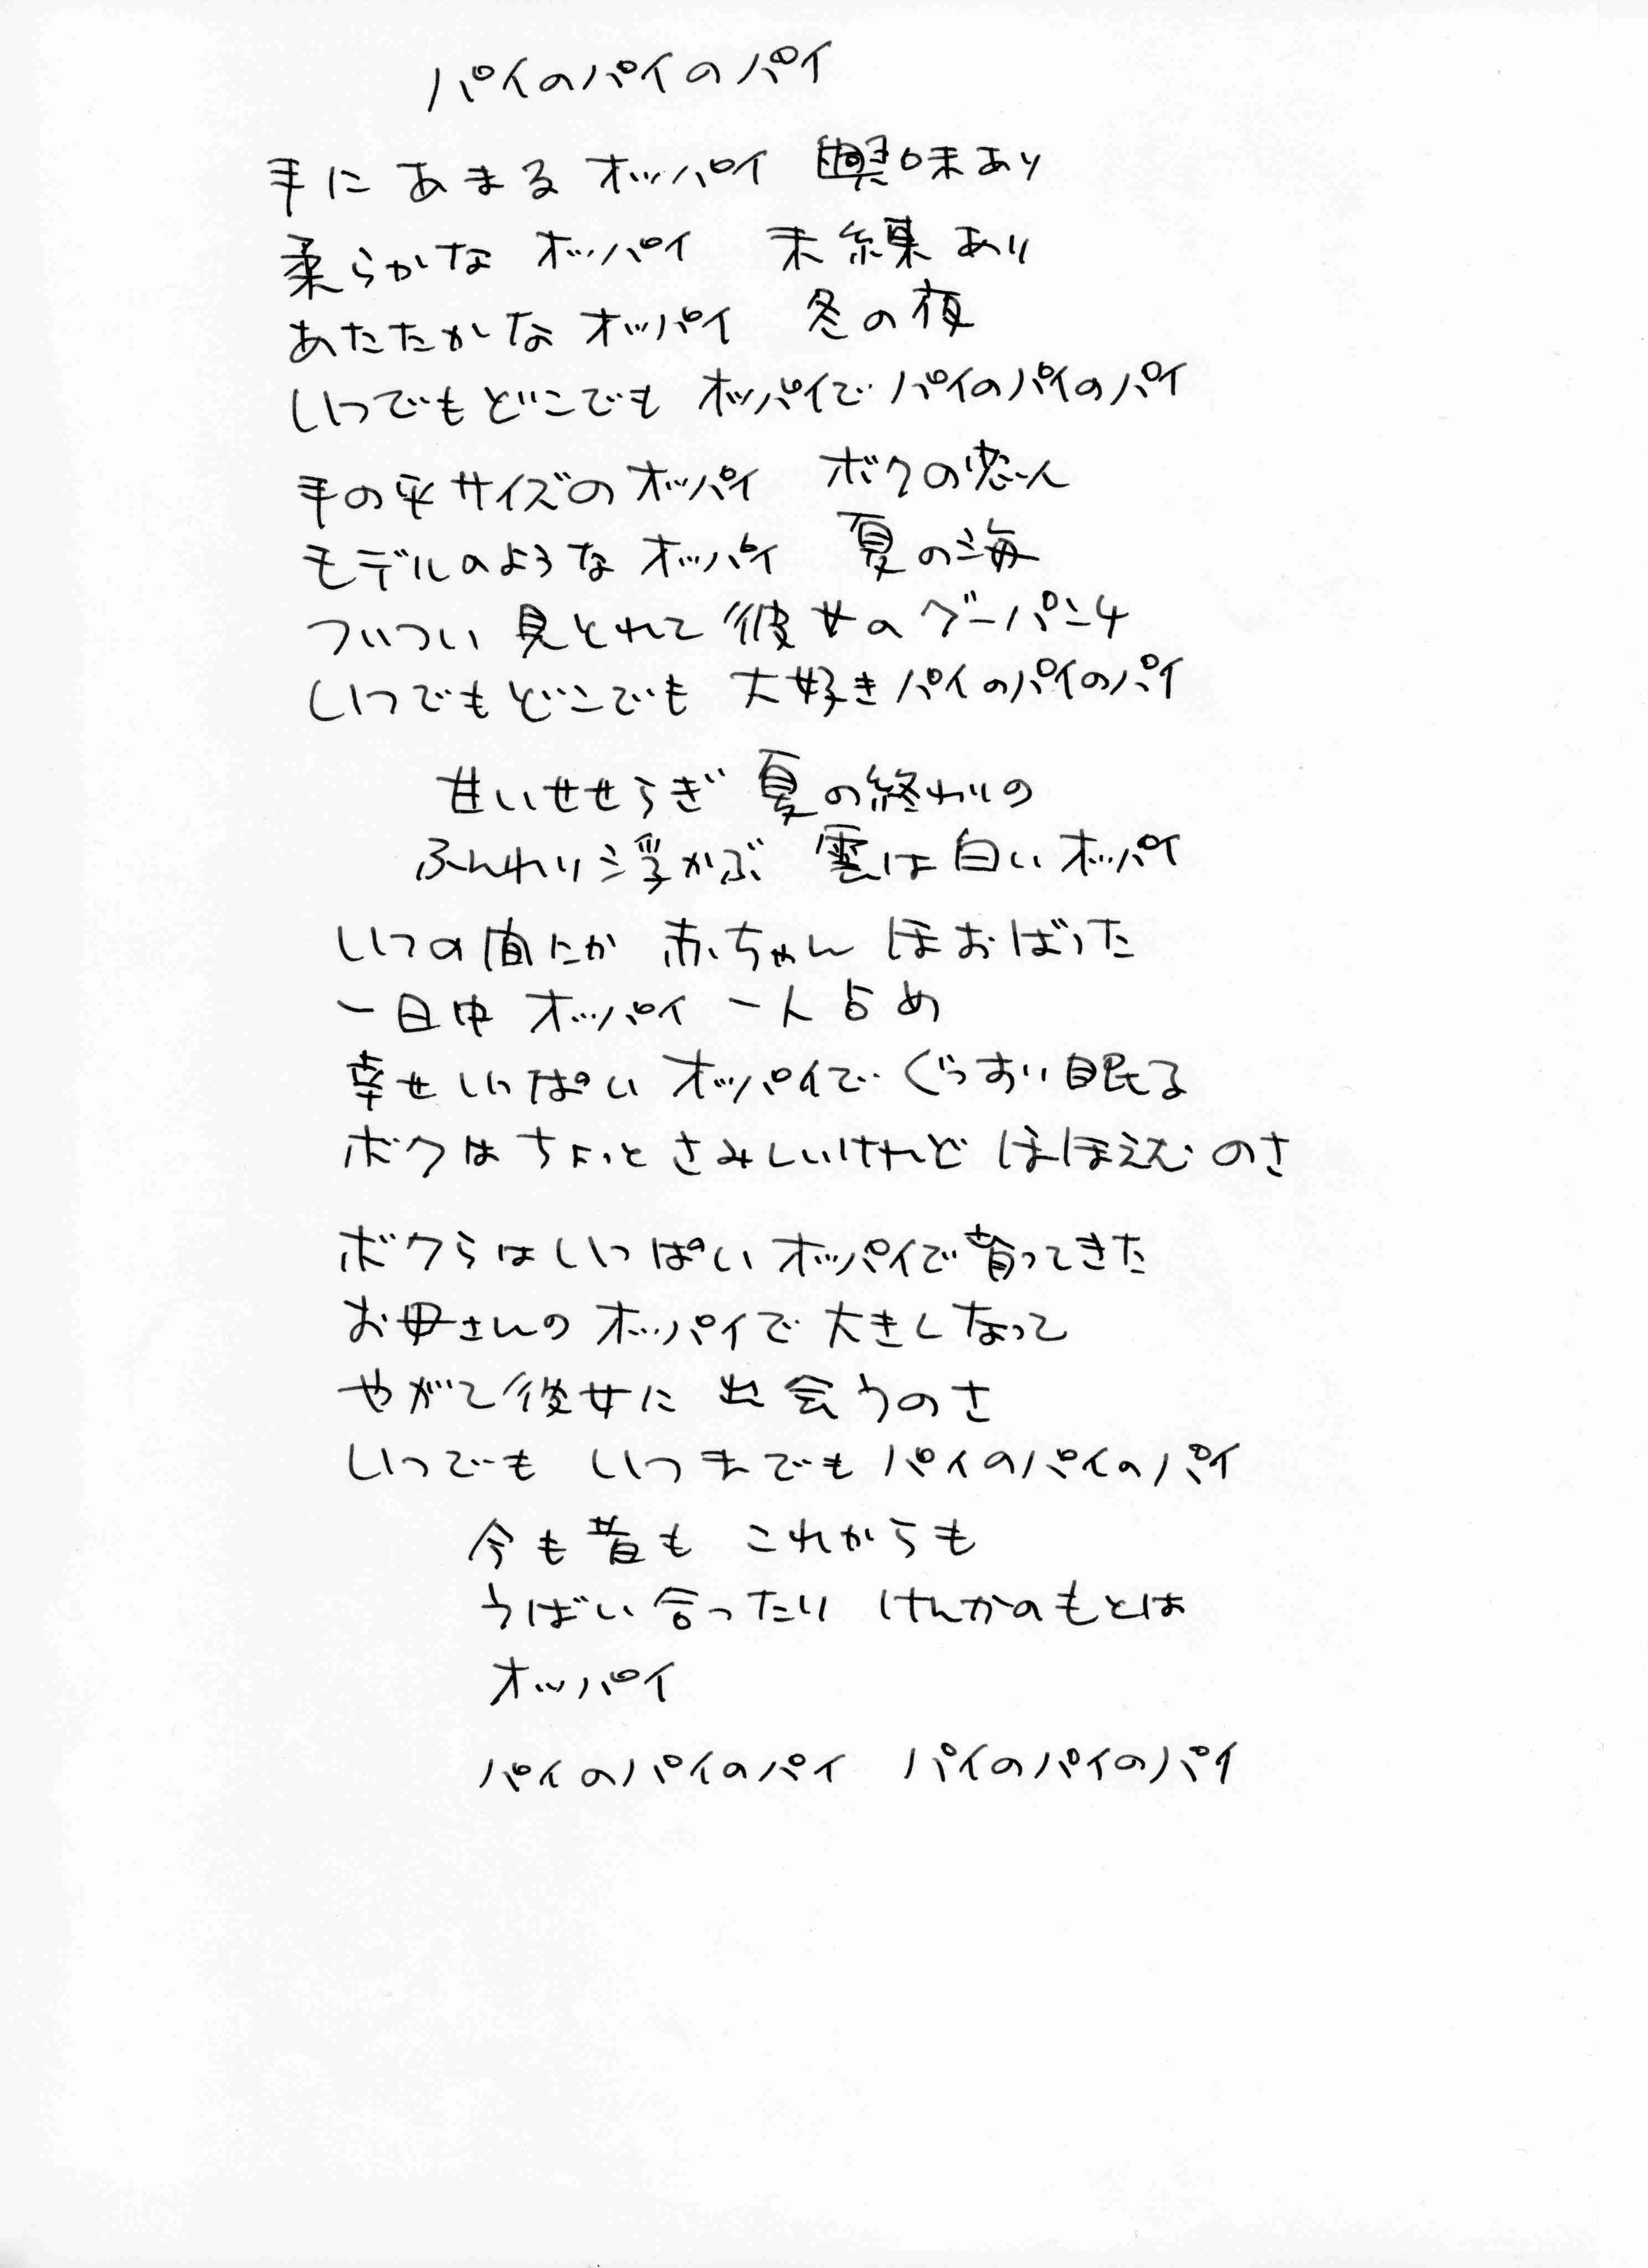 パイのパイのパイ
手にあまる オッパイ 興味あり
柔らかな オッパイ 未練あり
あたたかな オッパイ 冬の夜
いつでもどこでも オッパイで パイのパイのパイ
手の平サイズの オッパイ ボクの恋人
モデルのような オッパイ 夏の海
ついつい 見とれて 彼女の グーパンチ
いつでもどこでも 大好き パイのパイのパイ
甘いせせらぎ 夏の終わりの
ふんわり浮かぶ 雲は白い オッパイ
いつの間にか 赤ちゃん ほおばった
一日中 オッパイ 一人占め
幸せいっぱい オッパイで ぐっすり眠る
ボクは ちょっと さみしいけれど ほほえむ のさ
ボクらは いっぱい オッパイで 育ってきた
お母さんの オッパイで 大きくなって
やがて彼女に 出会うのさ
いつでも いつまでも パイのパイのパイ
今も昔も これからも
うばい合ったり けんかのもとは
オッパイ
パイのパイのパイ パイのパイのパイ